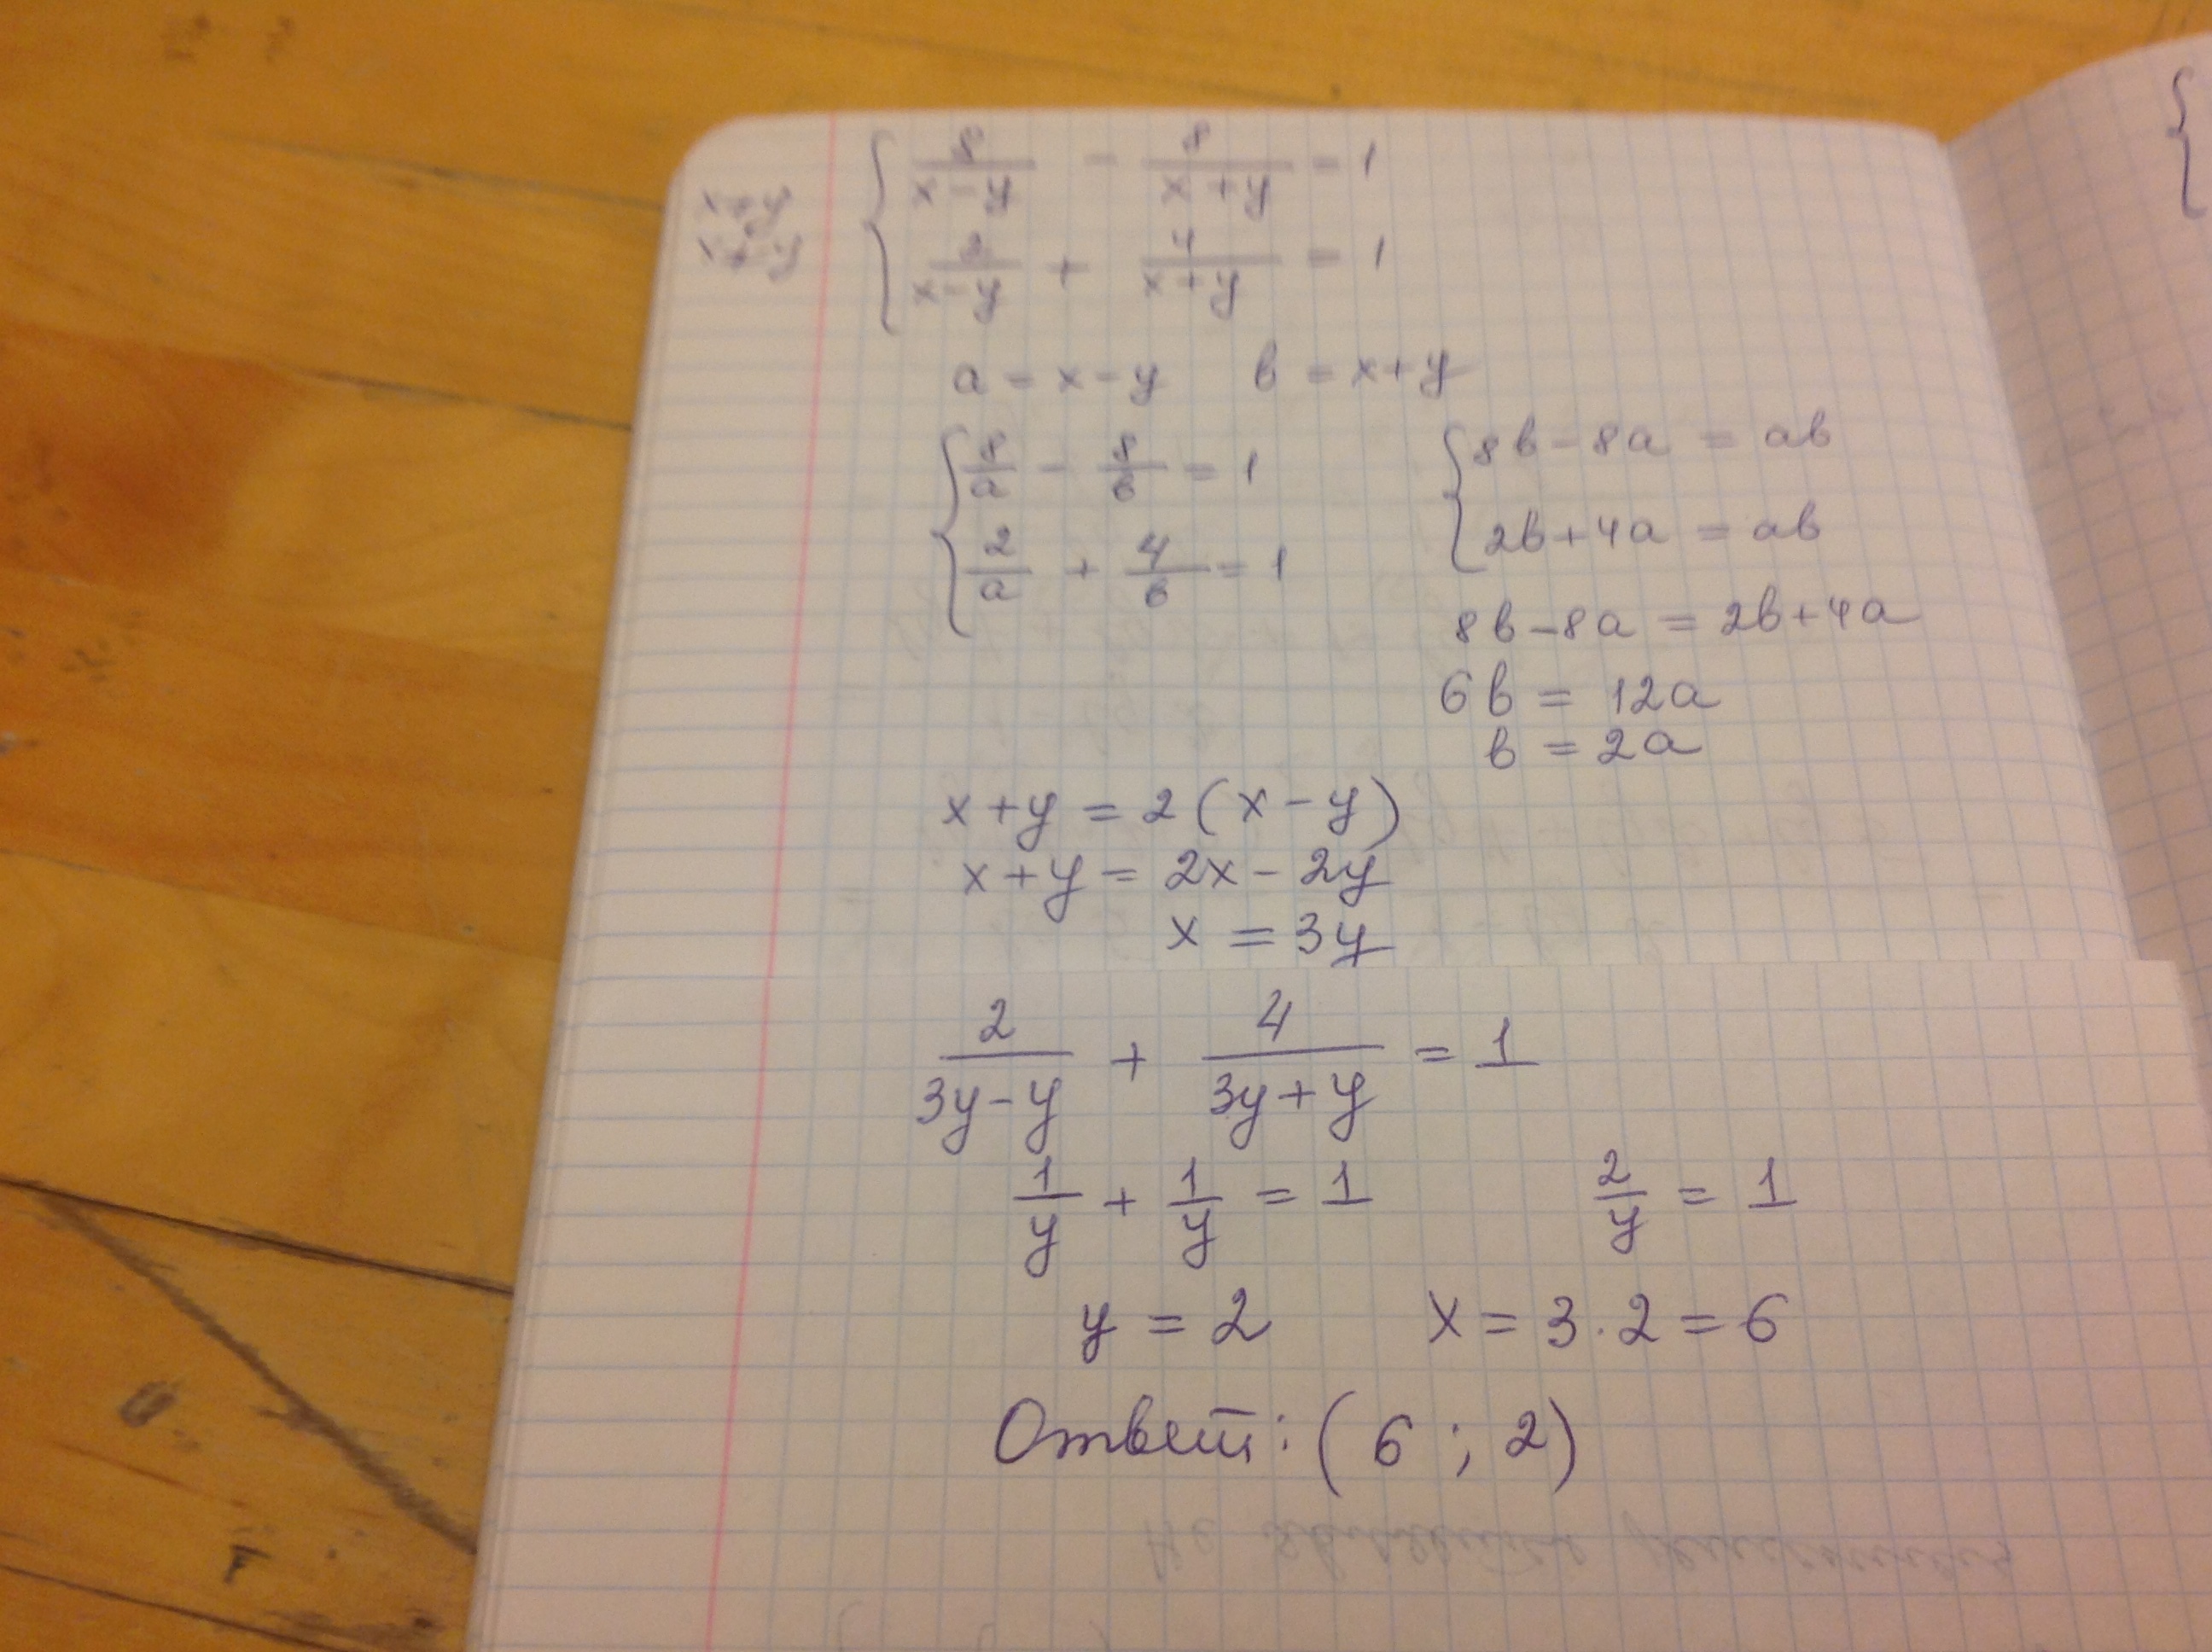 x+y
x-y
{ 8/(x-y) - 8/(x+y) = 1
{ 2/(x-y) + 4/(x+y) = 1
a = x-y   b = x+y
{ 8/a - 8/b = 1   { 8b-8a = ab
{ 2/a + 4/b = 1   { 2b+4a = ab
8b-8a = 2b+4a
6b = 12a
b = 2a
x+y = 2(x-y)
x+y = 2x-2y
x = 3y
2/(3y-y) + 4/(3y+y) = 1
1/y + 1/y = 1   2/y = 1
y = 2   x = 3·2 = 6
Ответ: (6 ; 2)